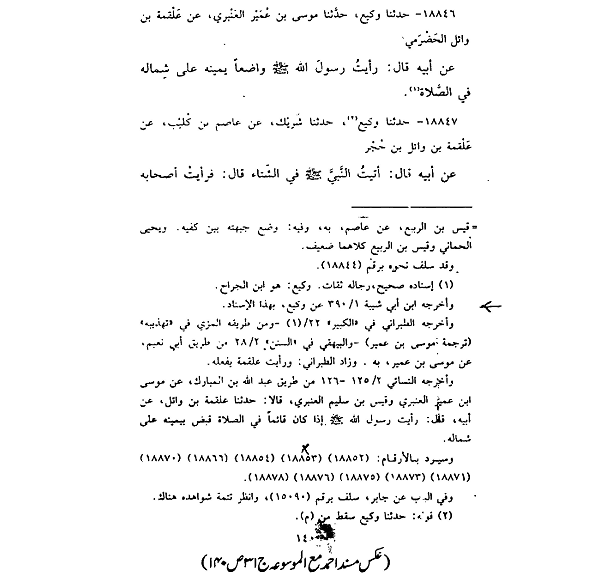 ١٨٨٤٦- حدثنا وكيع، حدَّثنا موسى بن عُمَيْر العَنْبري، عن عَلْقمة بن
وائل الحَضْرَمي
عن أبيه قال: رأيتُ رسولَ الله ﷺ واضعاً يمينه على شِماله
في الصَّلاة(١).
١٨٨٤٧- حدثنا وكيع(٢)، حدثنا شَريْك، عن عاصم بن كُلَيْب، عن
عَلْقمة بن وائل بن حُجْر
عن أبيه قال: أتيتُ النَّبيَّ ﷺ في الشِّتاء قال: فرأيتُ أصحابه
= قيس بن الربيع، عن عاصم، به، وفيه: وضع جبهته بين كفيه. ويحيى
الحماني وقيس بن الربيع كلاهما ضعيف.
وقد سلف نحوه برقم (١٨٨٤٤).
(١) إسناده صحيح، رجاله ثقات. وكيع: هو ابن الجراح.
وأخرجه ابن أبي شيبة ٣٩٠/١ عن وكيع، بهذا الإسناد.
وأخرجه الطبراني في «الكبير» ٢٢/(١) -ومن طريقه المزي في «تهذيبه»
(ترجمة موسى بن عمير) -والبيهقي في «السنن» ٢٨/٢ من طريق أبي نعيم،
عن موسى بن عمير، به. وزاد الطبراني: ورأيت علقمة يفعله.
وأخرجه النسائي ١٢٥/٢ -١٢٦ من طريق عبد الله بن المبارك، عن موسى
ابن عمير العنبري وقيس بن سليم العنبري، قالا: حدثنا علقمة بن وائل، عن
أبيه، قال: رأيت رسول الله ﷺ إذا كان قائماً في الصلاة قبض بيمينه على
شماله.
وسيرد بالأرقام: (١٨٨٥٢) (١٨٨٥٣) (١٨٨٥٤) (١٨٨٦٦) (١٨٨٧٠)
(١٨٨٧١) (١٨٨٧٣) (١٨٨٧٥) (١٨٨٧٦) (١٨٨٧٨).
وفي الباب عن جابر، سلف برقم (١٥٠٩٠)، وانظر تتمة شواهده هناك.
(٢) قوله: حدثنا وكيع سقط من (م).
١٤٠
(عکس مسند احمد مع الموسوعہ ج ٣١ ص ١٤٠)